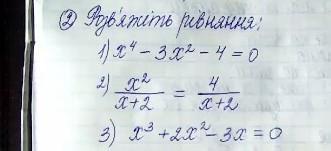 ② Розв'яжіть рівняння:
1) x⁴ - 3x² - 4 = 0
2) x²/(x+2) = 4/(x+2)
3) x³ + 2x² - 3x = 0